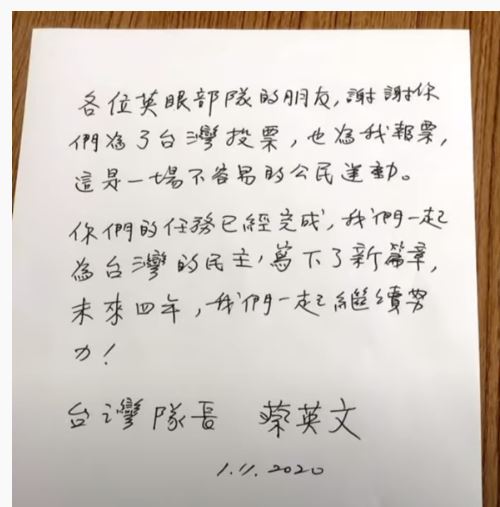 各位英眼部隊的朋友,謝謝你
們為了台灣投票,也為我報票,
這是一場不容易的公民運動。
你們的任務已經完成,我們一起
為台灣的民主,寫下了新篇章,
未來四年,我們一起繼續努
力!
台灣隊長 蔡英文
1.11.2020